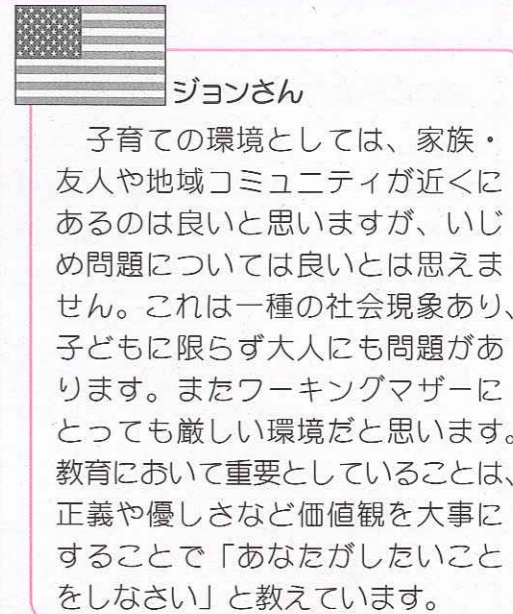 ジョンさん
子育ての環境としては、家族・
友人や地域コミュニティが近くに
あるのは良いと思いますが、いじ
め問題については良いとは思えま
せん。これは一種の社会現象あり、
子どもに限らず大人にも問題があ
ります。またワーキングマザーに
とっても厳しい環境だと思います。
教育において重要としていることは、
正義や優しさなど価値観を大事に
することで「あなたがしたいこと
をしなさい」と教えています。